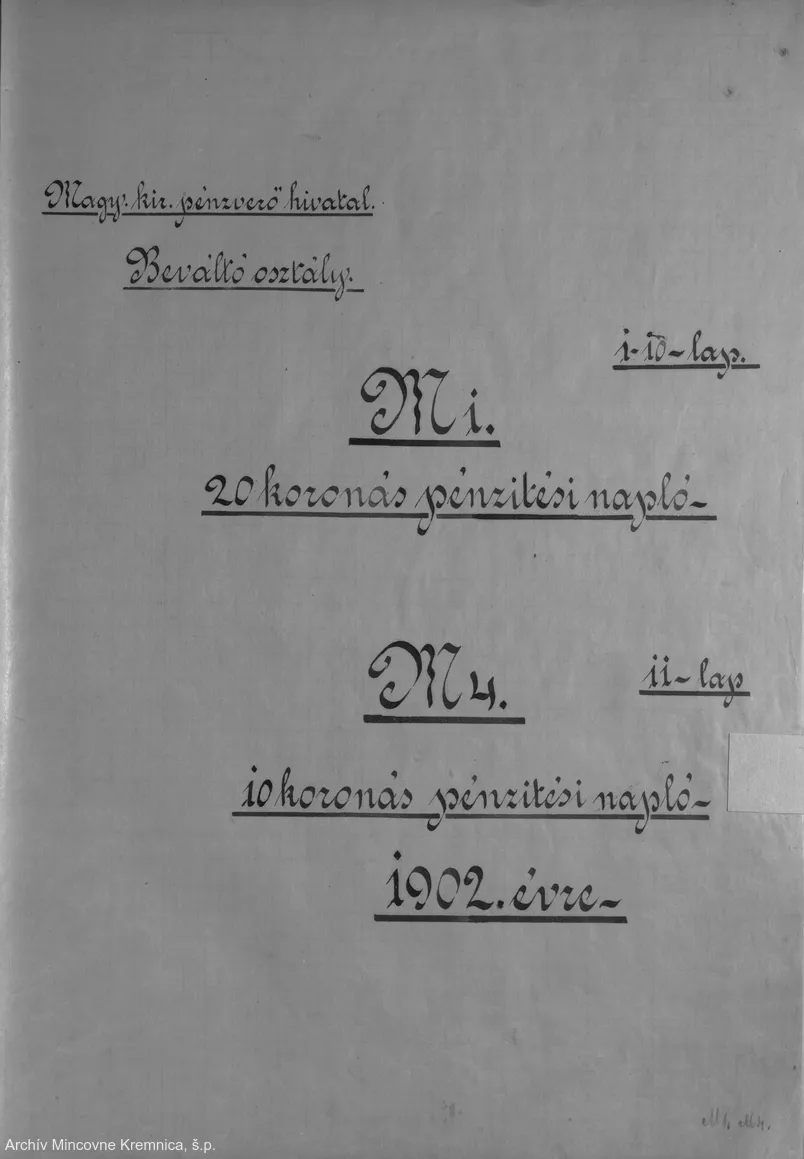 Magy. kir. pénzverő hivatal.
Beváltó osztály.
1-10-lap.
M 1.
20 koronás pénzitési napló-
M 4.
11-lap
10 koronás pénzitési napló-
1902. évre-
M 1, M 4.
Archív Mincovne Kremnica, š.p.